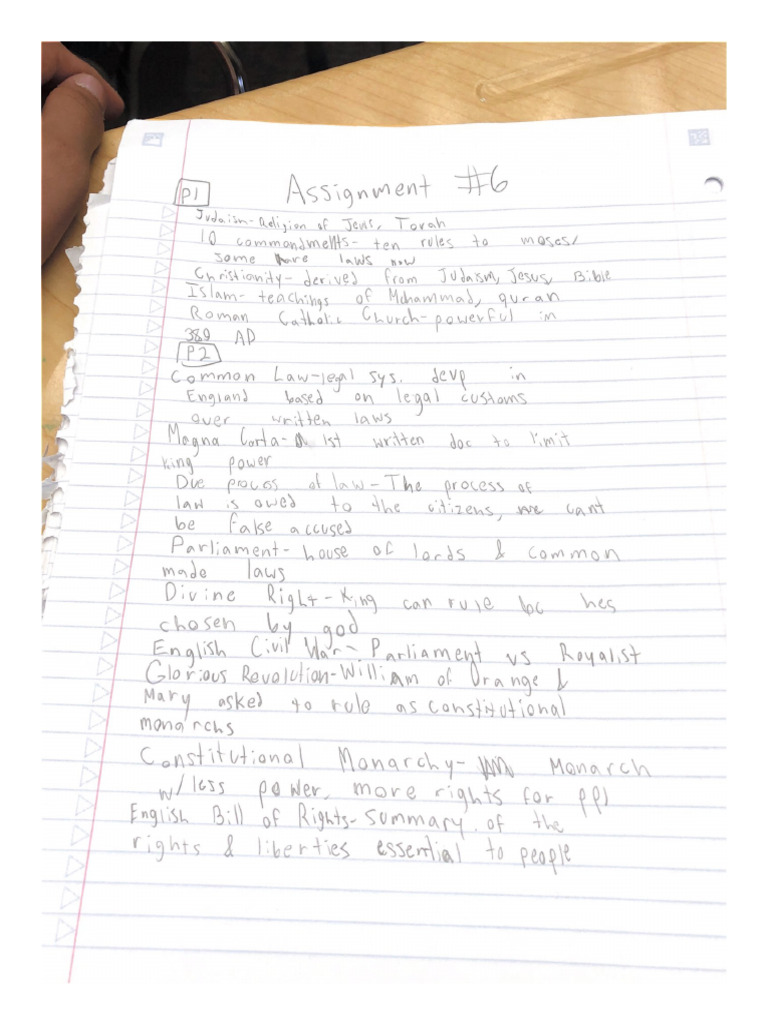 Assignment #6
P1
Judaism-Religion of Jews, Torah
10 commandments- ten rules to moses/
some are laws now
Christianity- derived from Judaism, Jesus, Bible
Islam- teachings of Mohammad, quran
Roman Catholic Church-powerful in
380 AD
P2
Common Law-legal sys. devp in
England based on legal customs
over written laws
Magna Carta- 1st written doc to limit
king power
Due process of law-The process of
law is owed to the citizens, cant
be false accused
Parliament- house of lords & common
made laws
Divine Right-King can rule bc hes
chosen by god
English Civil War- Parliament vs Royalist
Glorious Revolution-William of Orange &
Mary asked to rule as constitutional
monarchs
Constitutional Monarchy- Monarch
w/less power, more rights for ppl
English Bill of Rights-Summary of the
rights & liberties essential to people